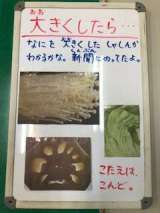 おお
大きくしたら…
なにを大きくしたしゃしんか
わかるかな。新聞にのってたよ。
しんぶん
こたえは、
こんど。